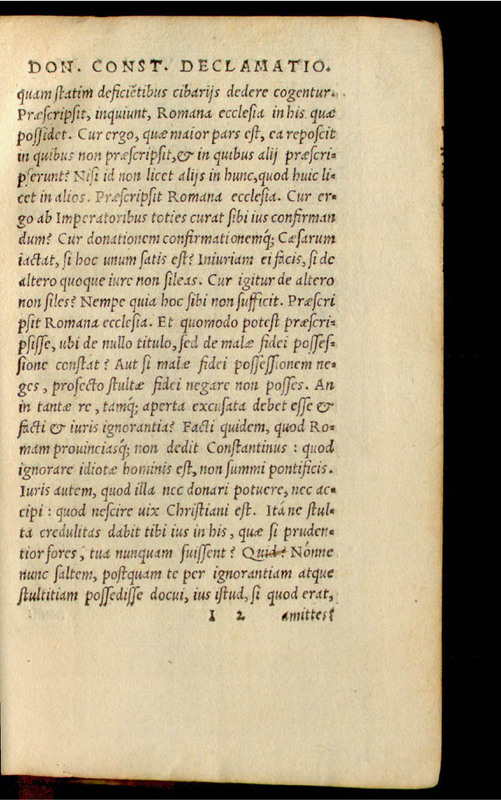 DON. CONST. DECLAMATIO.
quam statim deficiẽtibus cibarijs dedere cogentur.
Præscripsit, inquiunt, Romana ecclesia in his quæ
possidet. Cur ergo, quæ maior pars est, ea reposcit
in quibus non præscripsit, & in quibus alij præscri-
pserunt? Nisi id non licet alijs in hunc, quod huic li-
cet in alios. Præscripsit Romana ecclesia. Cur er-
go ab Imperatoribus toties curat sibi ius confirman
dum? Cur donationem confirmationemq; Cæsarum
iactat, si hoc unum satis est? Iniuriam ei facis, si de
altero quoque iure non sileas. Cur igitur de altero
non siles? Nempe quia hoc sibi non sufficit. Præscri
psit Romana ecclesia. Et quomodo potest præscri-
psisse, ubi de nullo titulo, sed de malæ fidei posses-
sione constat? Aut si malæ fidei possessionem ne-
ges, profecto stultæ fidei negare non posses. An
in tantæ re, tamq; aperta excusata debet esse &
facti & iuris ignorantia? Facti quidem, quod Ro-
mam prouinciasq; non dedit Constantinus : quod
ignorare idiotæ hominis est, non summi pontificis.
Iuris autem, quod illa nec donari potuere, nec ac-
cipi : quod nescire uix Christiani est. Itá ne stul-
ta credulitas dabit tibi ius in his, quæ si pruden-
tior fores, tua nunquam fuissent? Quid? Nónne
nunc saltem, postquam te per ignorantiam atque
stultitiam possedisse docui, ius istud, si quod erat,
I 2 amittes?